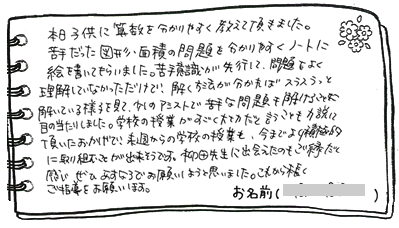 本日子供に算数を分かりやすく教えて頂きました。
苦手だった図形・面積の問題を分かりやすくノートに
絵を書いてもらいました。苦手意識が先行して、問題をよく
理解していなかっただけで、解く方法が分かればスラスラっと
解いている様子を見て、少しのアシストで苦手な問題も解けることを
目の当たりしました。学校の授業がすべてわてだと言うことも力説して
頂いたおかげで、来週からの学校の授業も、今までより積極的
に取り組むことが出来そうです。柳田先生に出会えたのもご縁だと
感じ ぜひあすなろでお願いしようと思いました。これから末長く
ご指導をお願いします。
お名前( )